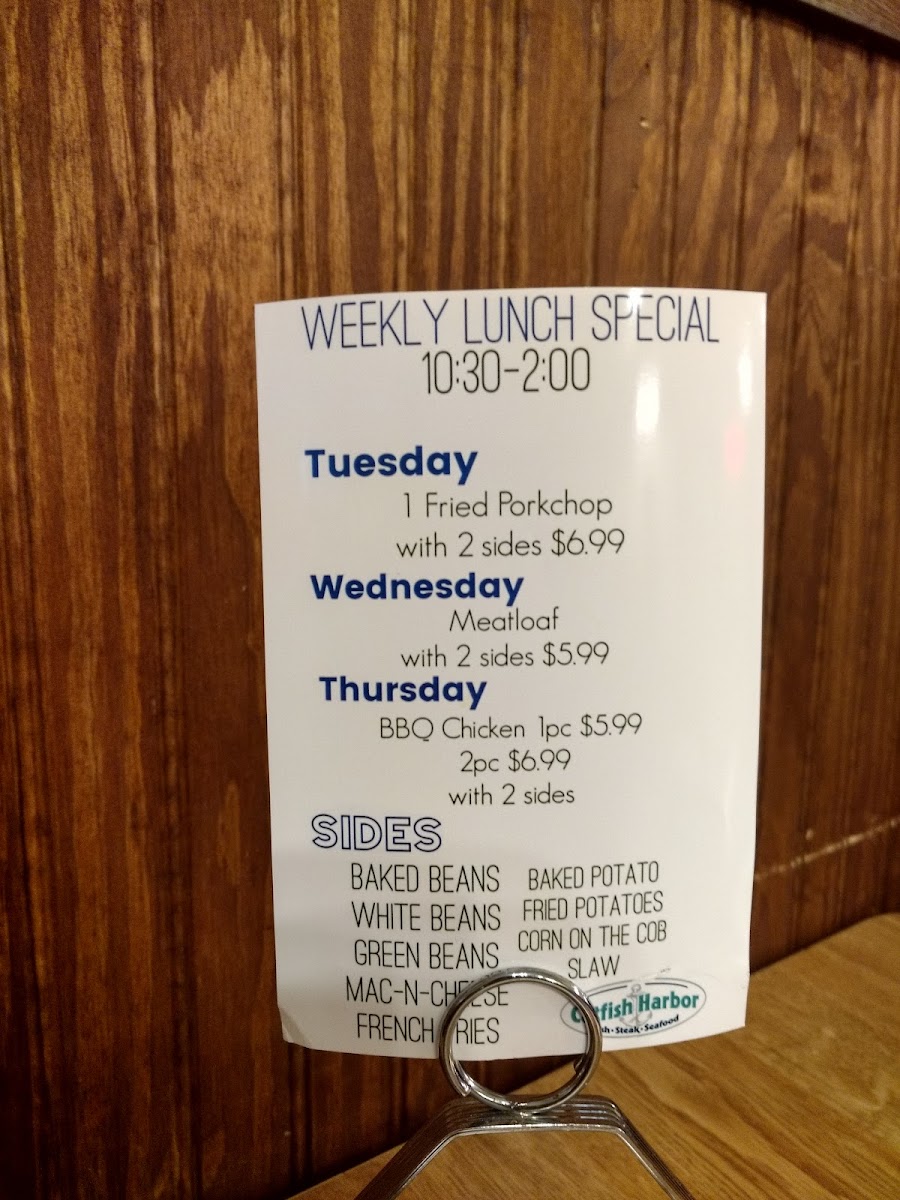 WEEKLY LUNCH SPECIAL
10:30-2:00
Tuesday
1 Fried Porkchop
with 2 sides $6.99
Wednesday
Meatloaf
with 2 sides $5.99
Thursday
BBQ Chicken 1pc $5.99
2pc $6.99
with 2 sides
SIDES
BAKED BEANS
WHITE BEANS
GREEN BEANS
MAC-N-CHEESE
FRENCH FRIES
BAKED POTATO
FRIED POTATOES
CORN ON THE COB
SLAW
Catfish Harbor
Steak • Seafood